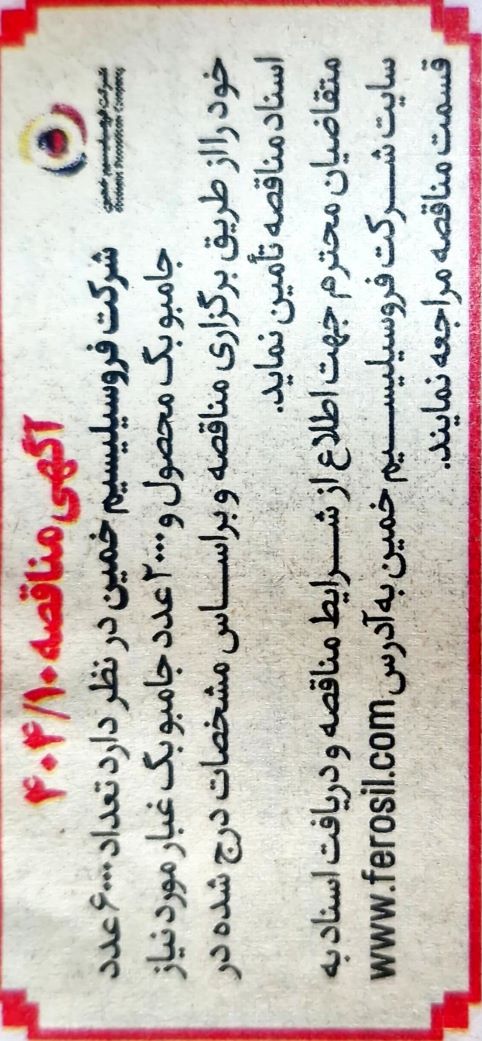 آگهی مناقصه ۴۰۴/۱۰
شرکت فروسیلیسیم خمین در نظر دارد تعداد ۶۰۰۰ عدد
جامبو بگ محصول و ۲۰۰۰ عدد جامبو بگ غبار مورد نیاز
خود را از طریق برگزاری مناقصه و براساس مشخصات درج شده در
اسناد مناقصه تأمین نماید.
متقاضیان محترم جهت اطلاع از شرایط مناقصه و دریافت اسناد به
سایت شرکت فروسیلیسیم خمین به آدرس www.ferosil.com
قسمت مناقصه مراجعه نمایند.